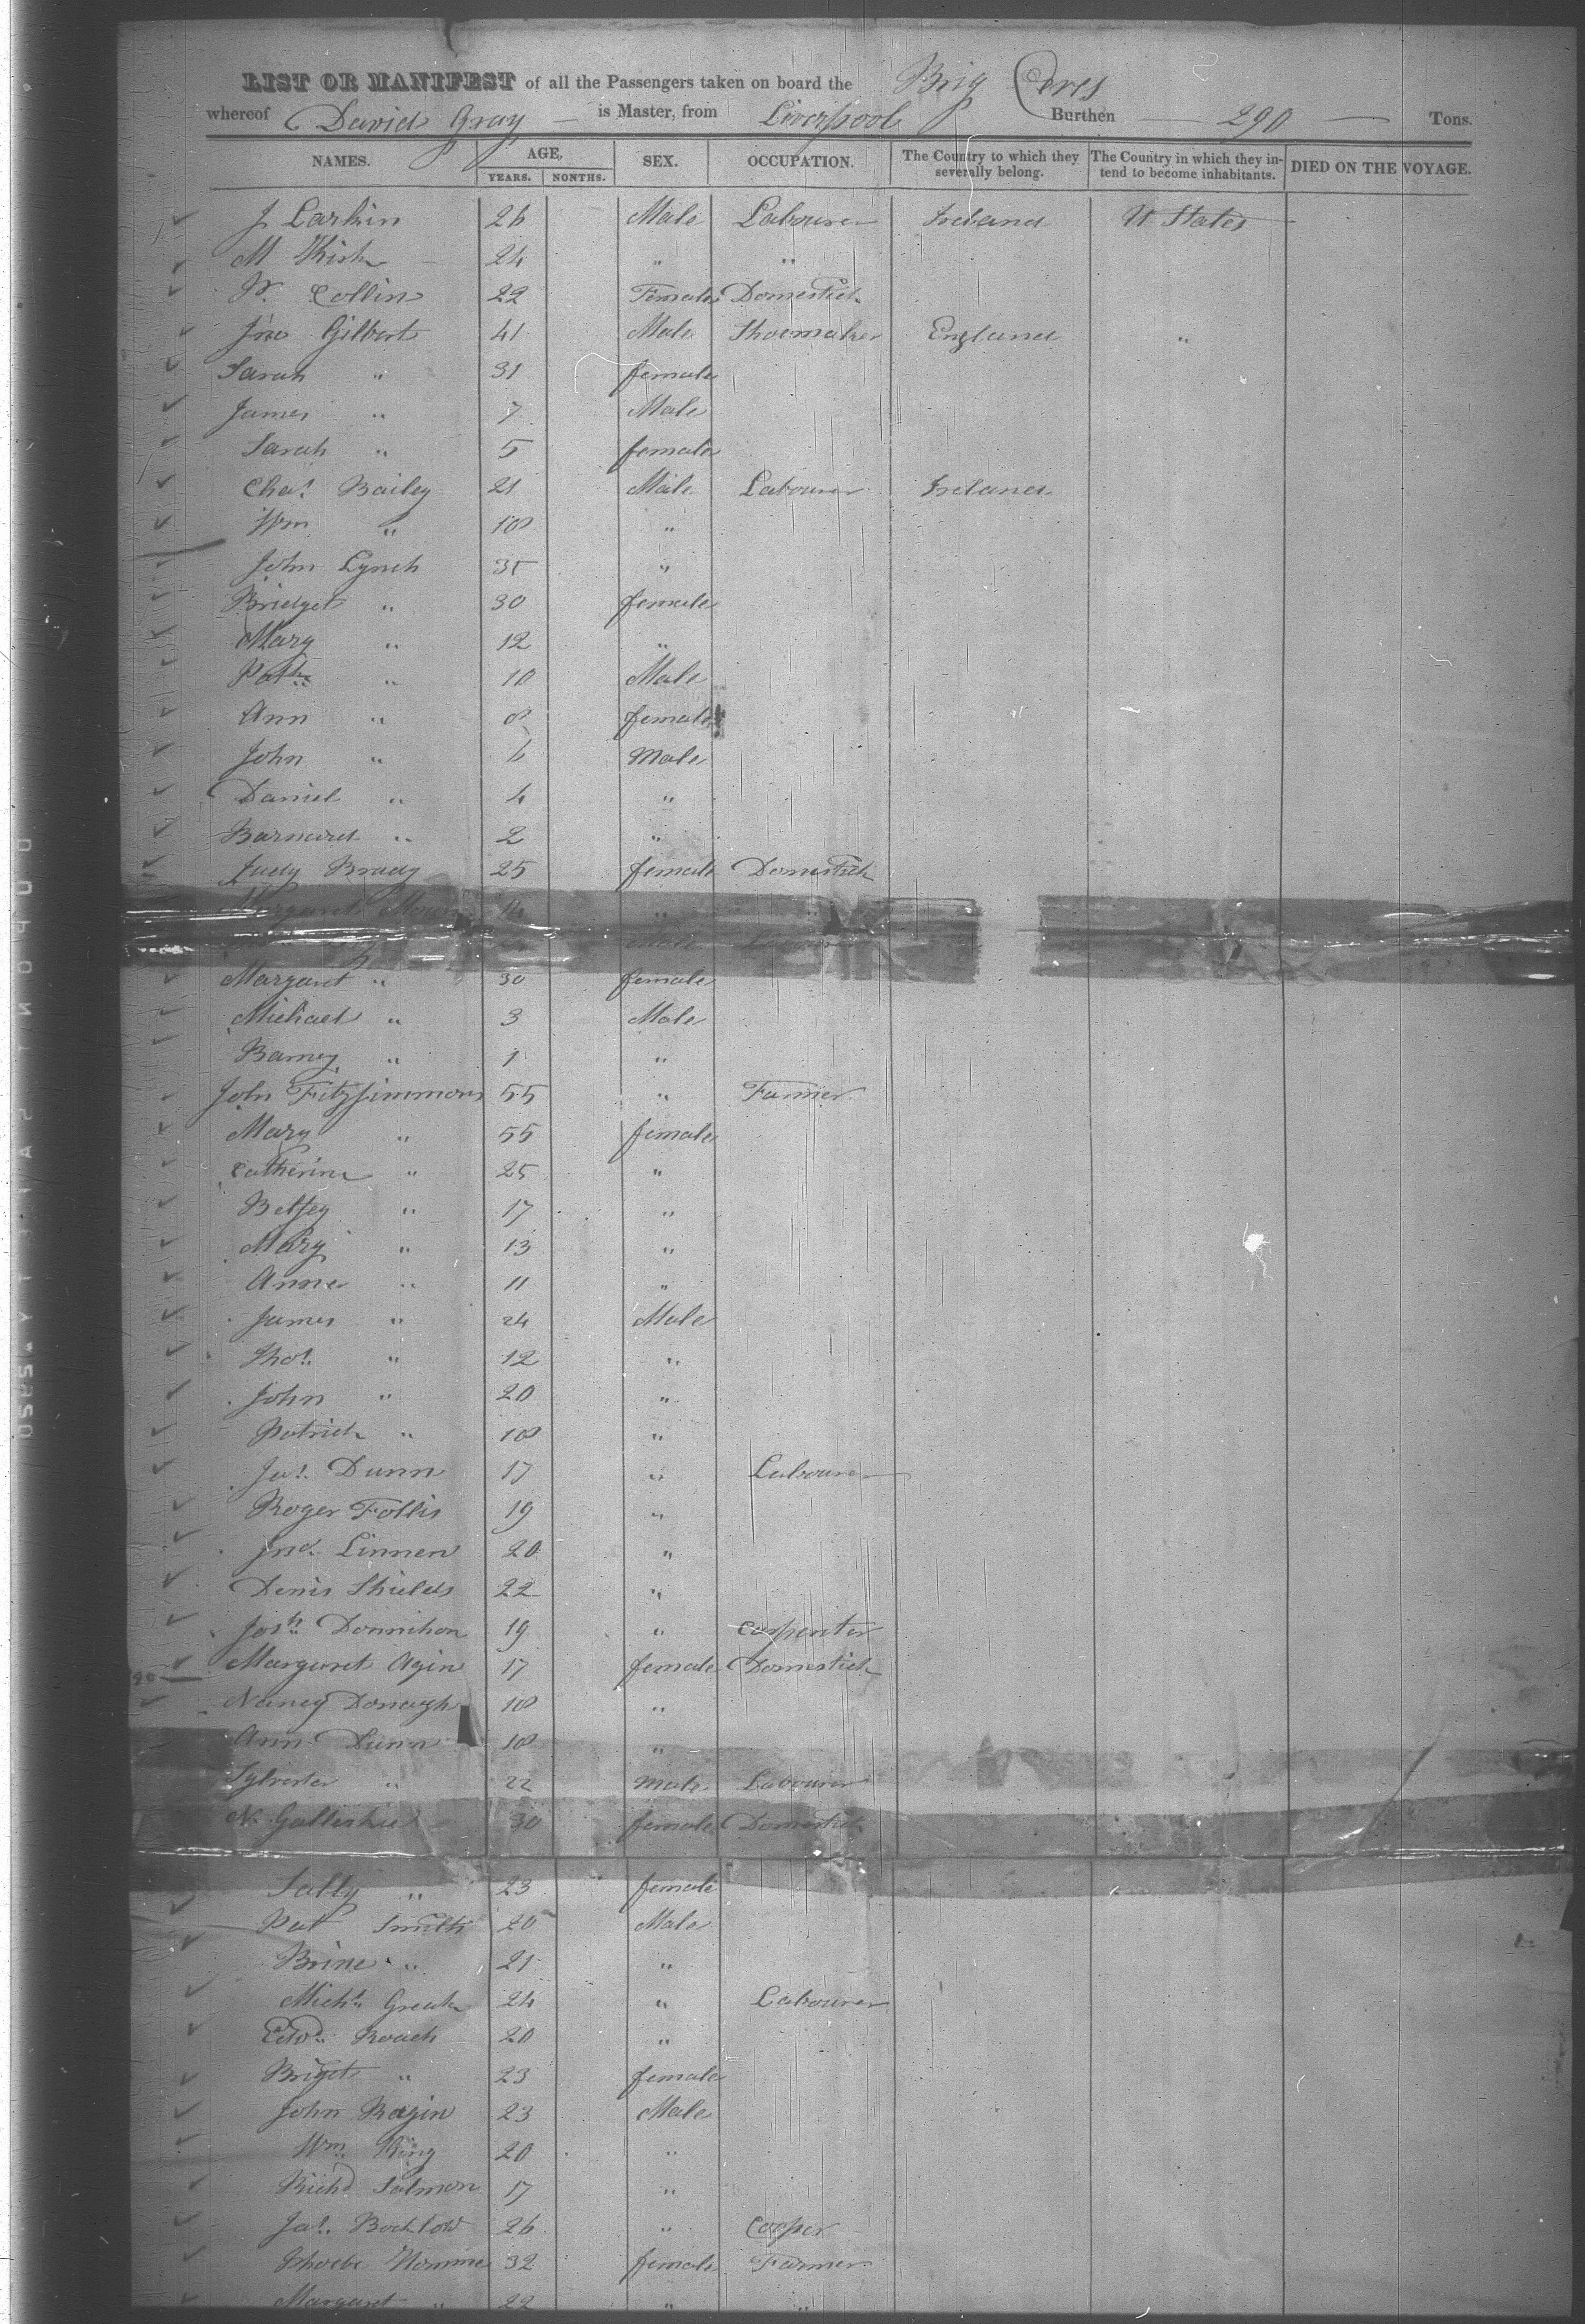 LIST OR MANIFEST of all the Passengers taken on board the Brig Ceres
whereof David Gray is Master, from Liverpool Burthen 290 Tons.
NAMES. AGE, SEX. OCCUPATION. The Country to which they severally belong. The Country in which they intend to become inhabitants. DIED ON THE VOYAGE.
YEARS. MONTHS.
J Larkin 26 Male Labourer Ireland U States
M Kirk 24 " "
Collin 22 Female Domestick
Jno Gilbert 41 Male Shoemaker England "
Sarah " 31 female
James " 7 Male
Sarah " 5 female
Chas. Bailey 21 Male Labourer Ireland
Wm " 18 "
John Lynch 35 "
Bridget " 30 female
Mary " 12 "
Patk " 10 Male
Ann " 8 female
John " 6 Male
Daniel " 4 "
Barnard " 2 "
Judy Brady 25 female Domestick
Margaret 14 "
Male Labourer
Margaret " 30 female
Michael " 3 Male
Barney " 1 "
John Fitzsimmons 55 " Farmer
Mary " 55 female
Catherine " 25 "
Betsey " 17 "
Mary " 13 "
Anne " 11 "
James " 24 Male
Thos. " 12 "
John " 20 "
Patrick " 18 "
Jas. Dunn 17 " Labourer
Roger Follis 19 "
Jno. Linnen 20 "
Denis Shields 22 "
Josh. Donnihon 19 " Carpenter
Margaret Agin 17 female Domestick
Nancy Donagh 18 "
Ann Dunn 18 "
Sylvester " 22 Male Labourer
N. 30 female Domestick
Sally " 23 female
Pat Smith 20 Male
Brine " 21 "
Michl. 24 " Labourer
Edwd. Roach 20 "
Briget " 23 female
John Ragin 23 Male
Wm. King 20 "
Richd Salmon 17 "
Jas. 26 " Cooper
Phoebe 32 female Farmer
Margaret " 22 " "